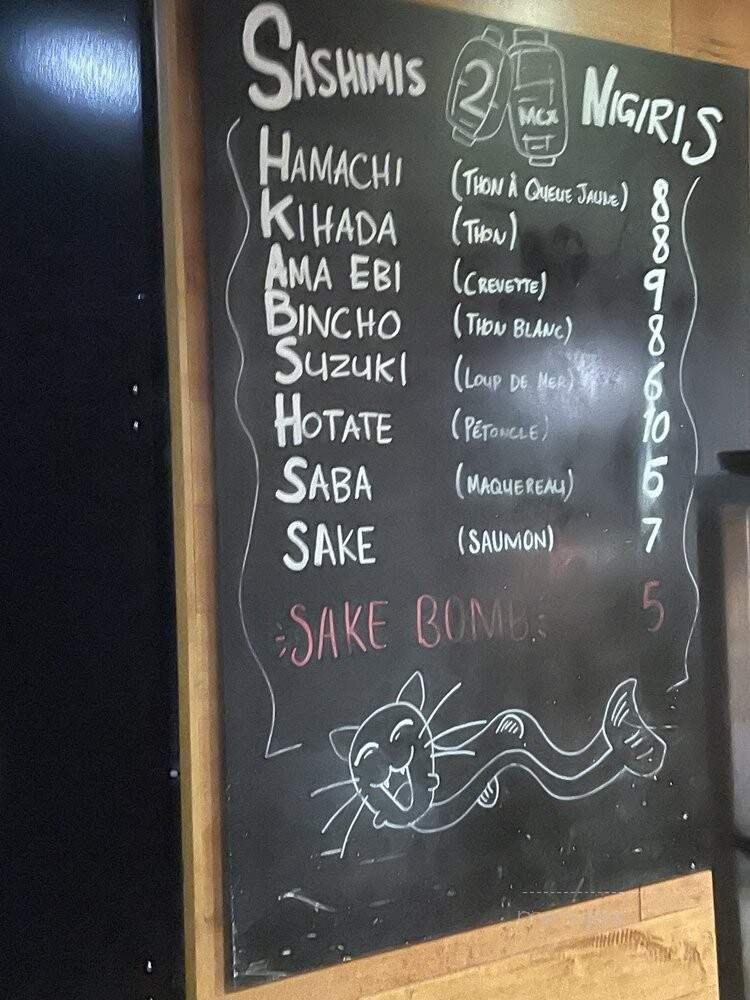 SASHIMIS 2 MCX NIGIRIS
HAMACHI (THON À QUEUE JAUNE) 8
KIHADA (THON) 8
AMA EBI (CREVETTE) 9
BINCHO (THON BLANC) 8
SUZUKI (LOUP DE MER) 6
HOTATE (PÉTONCLE) 10
SABA (MAQUEREAU) 5
SAKE (SAUMON) 7
SAKE BOMB 5